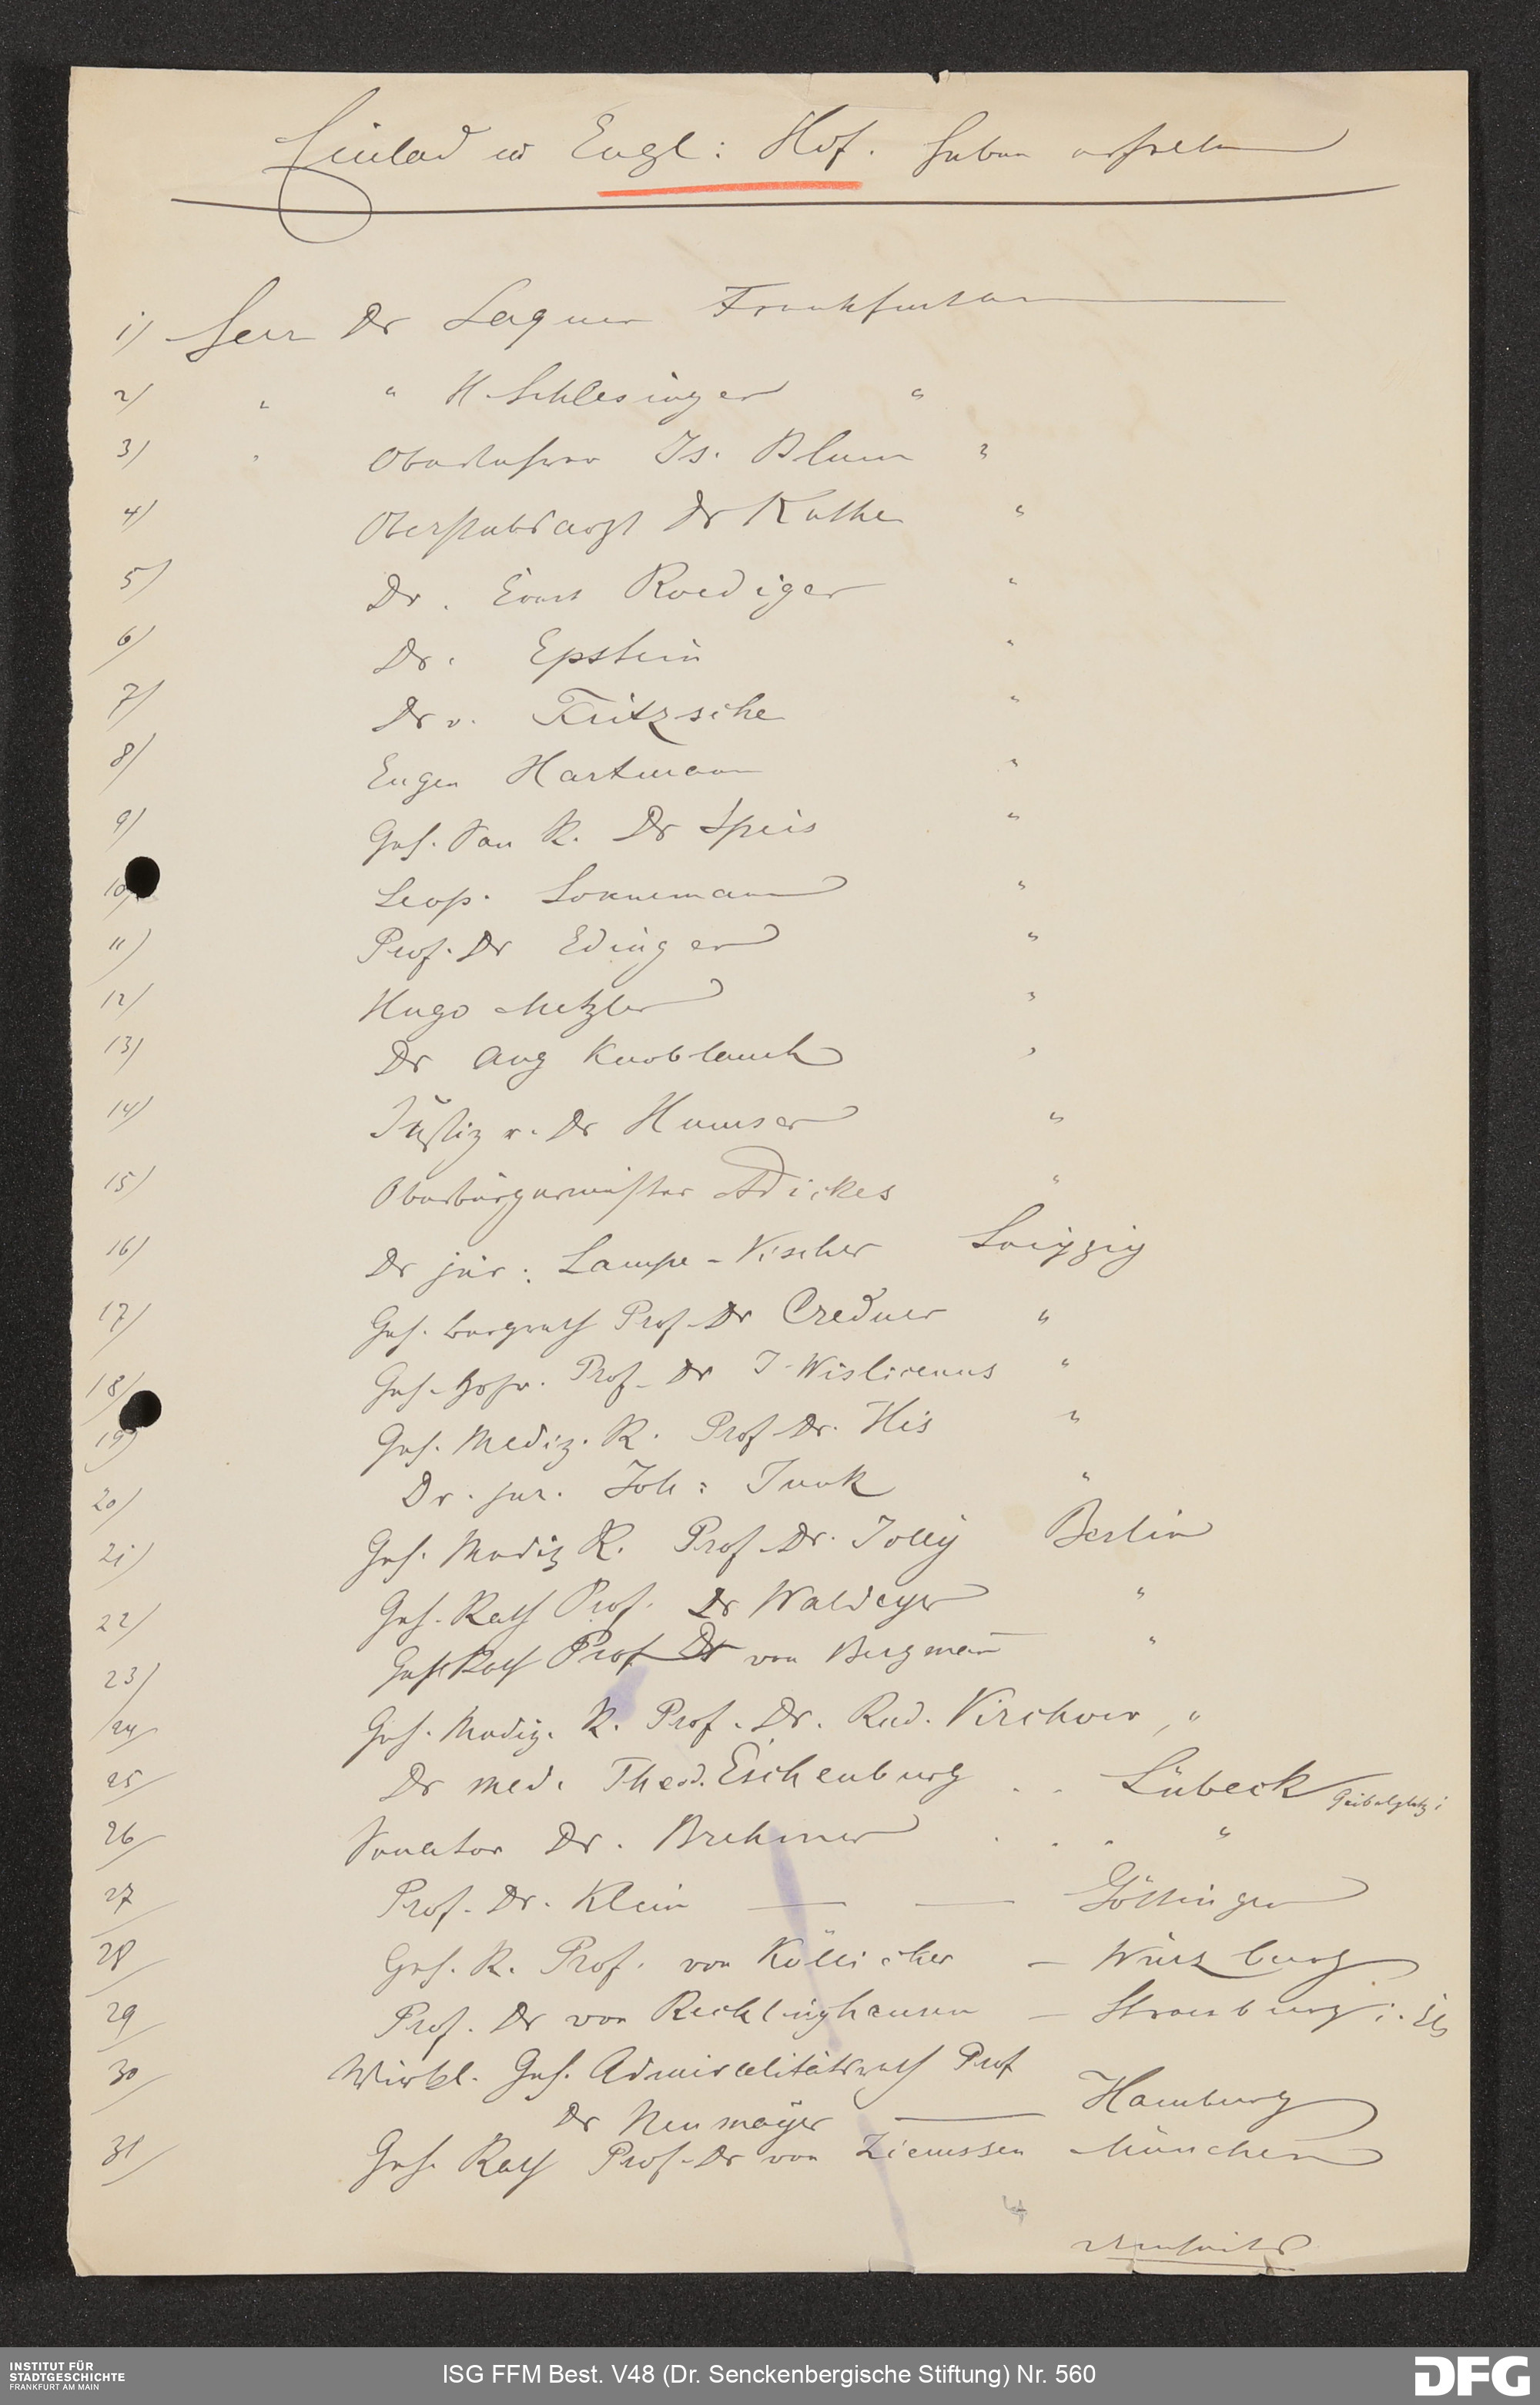 Einlad in Engl: Hof. haben erhalten
1) Herr Dr Laquer Frankfurt am
2) " " H. Schlesinger "
3) " Oberlehrer Is. Blum "
4) Oberstabsarzt Dr Kuthe "
5) Dr. Ernst Roediger "
6) Dr. Epstein "
7) Dr v. Fritzsche "
8) Eugen Hartmann "
9) Geh. San R. Dr Spiess "
10) Leop. Sonnemann "
11) Prof. Dr Edinger "
12) Hugo Metzler "
13) Dr Aug Knoblauch "
14) Justiz r. Dr Humser "
15) Oberbürgermeister Adickes "
16) Dr jur: Lampe-Vischer Leipzig
17) Geh. Bergrath Prof. Dr Credner "
18) Geh. Hofr. Prof. Dr J. Wislicenus "
19) Geh. Mediz. R. Prof Dr. His "
20) Dr. jur. Joh: Junk "
21) Geh. Mediz R. Prof. Dr. Jolly Berlin
22) Geh. Rath Prof. Dr Waldeyer "
23) Geh Rath Prof Dr von Bergmann "
24) Geh. Mediz. R. Prof. Dr. Rud. Virchow "
25) Dr med. Theod. Eschenburg . . Lübeck Geibelplatz 1
26) Senator Dr. Brehmer . . . "
27) Prof. Dr. Klein — — Göttingen
28) Geh. R. Prof. von Köllicker — Würzburg
29) Prof. Dr von Recklinghausen — Strassburg i. Els
30) Wirkl. Geh. Admiralitätsrath Prof
Dr Neumayer — Hamburg
31) Geh. Rath Prof. Dr von Ziemssen München
INSTITUT FÜR
STADTGESCHICHTE
FRANKFURT AM MAIN
ISG FFM Best. V48 (Dr. Senckenbergische Stiftung) Nr. 560
DFG